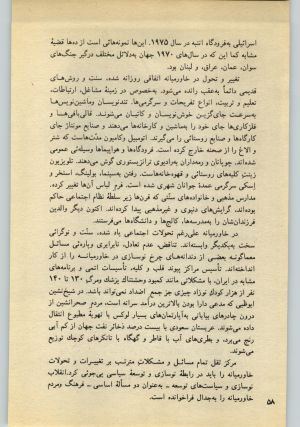 اسرائیلی به‌فرودگاه انتبه در سال ۱۹۷۵. این‌ها نمونه‌هائی است از ده‌ها قضیهٔ
مشابه کما این که در سال‌های ۱۹۷۰ جهان به‌دلائل مختلف درگیر جنگ‌های
سوان، عمان، عراق، و لبنان بود.
تغییر و تحول در خاورمیانه اتفاقی روزانه شده، سنت و روش‌های
قدیمی دائماً به‌عقب رانده می‌شود. به‌خصوص در زمینهٔ مشاغل، ارتباطات،
تعلیم و تربیت، انواع تفریحات و سرگرمی‌ها. تندنویسان و ماشین‌نویس‌ها
به‌سرعت جای‌گزین خوش‌نویسان و کاتبان می‌شوند. قالی‌بافی‌ها و
فلزکاری‌ها جای خود را به‌ماشین و کارخانه‌ها می‌دهند و صنایع مونتاژ جای
کارگاه‌ها و صنایع روستائی را می‌گیرند. اتومبیل و کامیون مدت‌هاست که شتر
و الاغ را از صحنه خارج کرده است. فرودگاه‌ها و هواپیماها وسیله‌ئی عمومی
شده‌اند، چوپانان و رمه‌داران به‌رادیوی ترانزیستوری گوش می‌دهند. تلویزیون
زینت کلبه‌های روستائی و قهوه‌خانه‌هاست. رفتن به‌سینما، بولینگ، استخر و
اسکی سرگرمی عمدهٔ جوانان شهری شده است. فرم لباس آن‌ها تغییر کرده.
مدارس مذهبی و خانواده‌های سنتی که قرن‌ها زیر سلطهٔ نظام اجتماعی حاکم
بوده‌اند، گرایش‌های دنیوی و غیرمذهبی پیدا کرده‌اند. اکنون دیگر والدین
فرزندان‌شان را به‌مدرسه‌ها، کالج‌ها و دانشگاه‌ها می‌فرستند.
در خاورمیانه علی‌رغم تحولات اجتماعی یاد شده، سنّت و نوگرائی
سخت به‌یکدیگر وابسته‌اند. تناقض، عدم تعادل، نابرابری و پاره‌ئی مسائل
معماگونه بعضی از دندانه‌های چرخ نوسازی در خاورمیانه را از کار
انداخته‌اند. تأسیس مراکز پیوند قلب و کلیه، تأسیسات اتمی و برنامه‌های
مشابه در ایران، با مشکلاتی مانند کمبود وحشتناک پزشک ومرگ ۱۲۰ تا ۱۴۰
نفر از هزار کودک نوزاد چیزی جز جمع اضداد نمی‌تواند باشد. در شیخ‌نشین
ابوظبی که مدعی دارا بودن بالاترین درآمد سرانه است، مردم صحرانشین از
درون چادرهای بیابانی به‌آپارتمان‌های بسیار لوکس با تهویهٔ مطبوع انتقال
داده می‌شوند. عربستان سعودی با بیست درصد ذخائر نفت جهان از کم آبی
رنج می‌برد، و بطری‌های آب با قاطر و گهگاه با تانکرهای کوچک توزیع
می‌شوند.
مرکز ثقل تمام مسائل و مشکلات مترتب بر تغییرات و تحولات
خاورمیانه را باید در رابطهٔ نوسازی و توسعهٔ سیاسی پی‌جوئی کرد. انقلاب
نوسازی و سیاست‌های توسعه – به‌عنوان دو مسألهٔ اساسی – فرهنگ ومردم
خاورمیانه را به‌جدال فراخوانده است.
۵۸